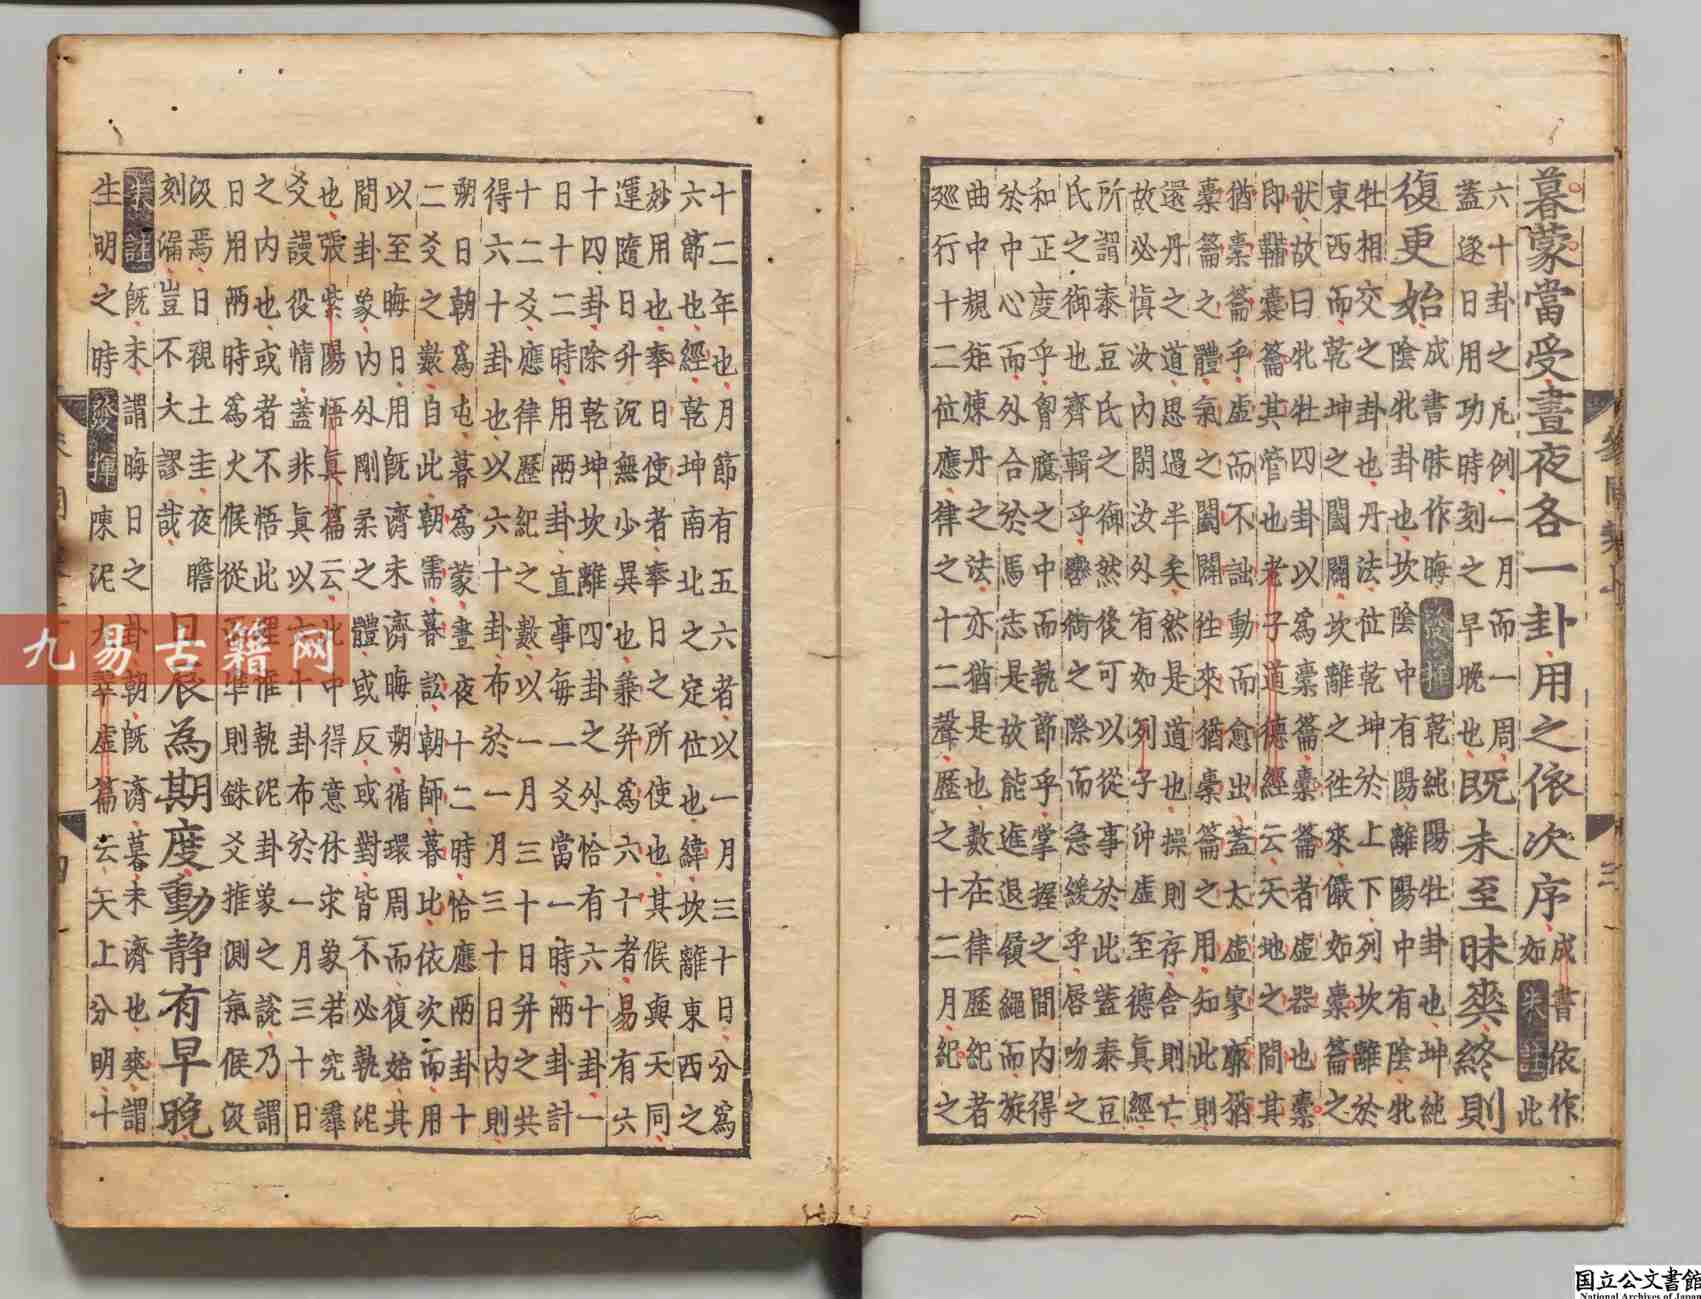 暮蒙當受晝夜各一卦用之依次序成書依作
如朱註此
六十卦之凡例一月而一周
蓋逐日用功時刻之早晚也
既未至昧爽終則
復更始
成書昧作晦發揮乾純陽牡卦也坤純
陰牝卦也坎陰中有陽離陽中有陰牝
牡相交之卦也丹法位乾坤於上下列坎離於
東西而乾坤之闔闢坎離之往來儼如橐籥之
狀故曰牝牡四卦以為橐籥橐籥者虛器也橐
即鞴囊籥其管也老子道德經云天地之間其
猶橐籥乎虛而不詘動而愈出蓋太虛寥廓猶
橐籥之體氣之闔闢往來猶橐籥之用知此則
還丹之道思過半矣然是道也操則存舍則亡
故必慎汝內閉汝外有如列子沖虛至德真經
所謂泰豆氏之御然後可以從事於此蓋泰豆
氏之御也齊輯乎轡銜之際而急緩乎唇吻之
和正度乎胷臆之中而執節乎掌握之間內得
於中心而外合於馬志是故能進退履繩而旋
曲中規矩煉丹之法亦猶是也數在律歷紀者
廵行十二位應律之十二聲歷之十二月紀之
十二年也月節有五六者以一月三十日分為
六節也經乾坤南北之定位也緯坎離東西之
妙用也奉日使者奉日之所使也其候與天同
運隨日升沉無少異也兼并為六十者易有六
十四卦除乾坤坎離四卦之外恰有六十卦一
日十二時用兩卦直事每一爻當一時兩卦計
十二爻應律歷紀之數以一月三十日并之共
得六十卦也以六十卦布於一月三十日內則
朔日朝為屯暮為蒙晝夜十二時恰應兩卦十
二爻之數自此朝需暮訟朝師暮比依次而用
以至晦日用既濟未濟晦朔循環周而復始其
間卦象內外剛柔之體或反或對皆不必執泥
也張紫陽悟真篇云此中得意休求象若究羣
爻謾役情蓋非真以六十卦布於一月三十日
之內也或者不悟此理惟執泥卦象之說乃謂
日用兩時為火候從而準則銖爻推測氣候汲
汲焉日視土圭夜瞻
刻漏豈不大謬哉
日辰為期度動靜有早晚
朱註既未謂晦日之卦朝既濟暮未濟也爽謂
生明之時發揮陳泥丸翠虛篇云天上分明十
九易古籍网
国立公文書館
National Archives of Japan